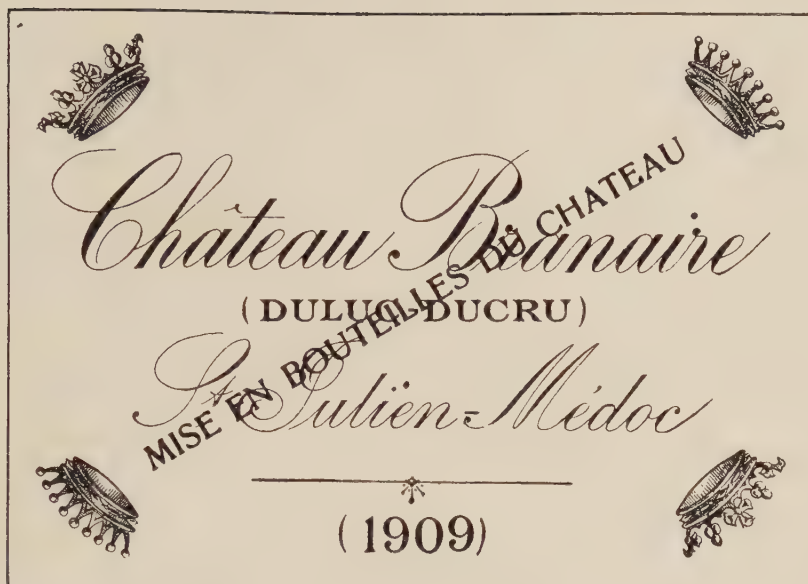 Château Branaire
(DULUC-DUCRU)
St Julien=Médoc
(1909)
MISE EN BOUTEILLES DU CHATEAU